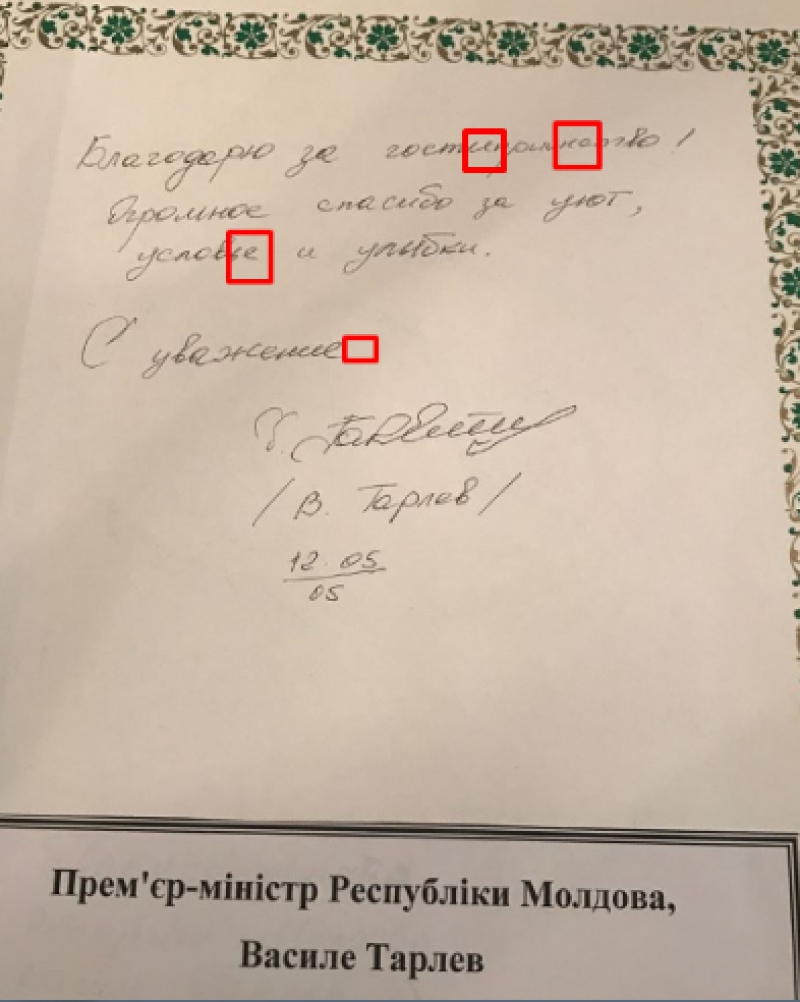 Благодарю за гостипримнство!
Огромное спасибо за уют,
условье и улыбки.
С уважение
/ В. Тарлев /
12.05
05
Прем'єр-міністр Республіки Молдова,
Василе Тарлев